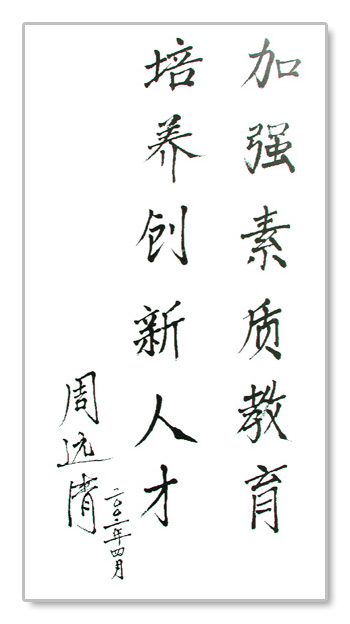 加强素质教育
培养创新人才
周远清
二〇〇二年四月